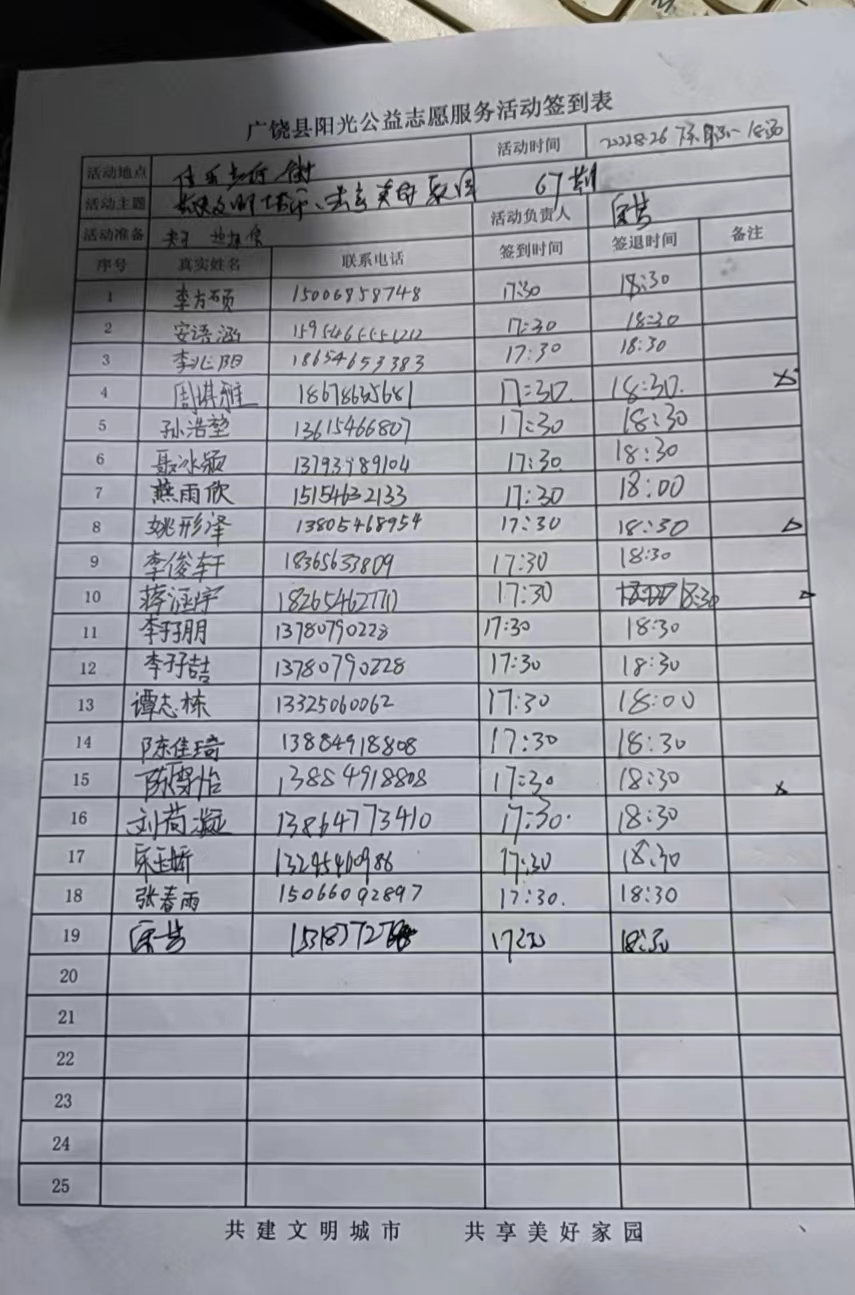 广饶县阳光公益志愿服务活动签到表
活动地点 活动时间 2022.8.26
活动主题 67期
活动准备 夹子 活动负责人
序号 真实姓名 联系电话 签到时间 签退时间 备注
1 李方硕 15006858748 17:30 18:30
2 安语涵 17:30 18:30
3 李兆阳 18654653383 17:30 18:30
4 周祺雅 17:30 18:30
5 孙浩堃 13615466807 17:30 18:30
6 聂冰颖 13793989104 17:30 18:30
7 燕雨欣 15154632133 17:30 18:00
8 姚彤泽 13805468954 17:30 18:30
9 李俊轩 18365633809 17:30 18:30
10 蒋涵宇 17:30 18:30
11 李子朋 13780790228 17:30 18:30
12 李子喆 13780790228 17:30 18:30
13 谭志栋 13325060062 17:30 18:00
14 陈佳琦 13884918808 17:30 18:30
15 陈雪怡 13884918808 17:30 18:30 ×
16 刘荷凝 13864773410 17:30 18:30
17 13245460986 17:30 18:30
18 张春雨 15066092897 17:30 18:30
19 17:30 18:30
20
21
22
23
24
25
共建文明城市 共享美好家园